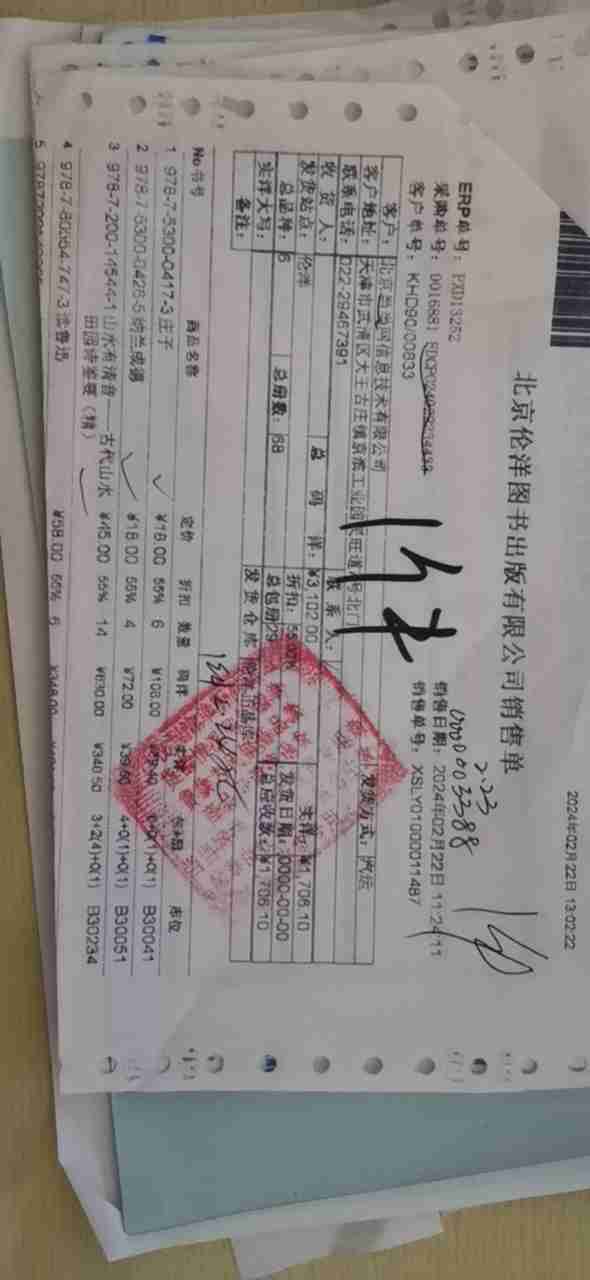 2024年02月22日 13:02:22
北京伦洋图书出版有限公司销售单
2.23
0000003388
ERP单号：PXD13252
采购单号：0016881 销售日期：2024年02月22日 11:24:11
客户单号：KHD90.00833 销售单号：XSLY01000011487
客户：北京当当网信息技术有限公司 发货方式：汽运
客户地址：天津市武清区大王古庄镇京滨工业园民旺道7号北门
联系电话：022-29467391 联系人：
收货人： 总码洋：¥3,102.00 实洋：¥1,706.10
发货站点：伦洋 折扣：55.00% 发货日期：0000-00-00
总品种：6 总册数：68 总包册 总应收款：¥1,706.10
实洋大写： 发货仓库
备注：
No 书号 商品名称 定价 折扣 数量 码洋 实洋 包+册 库位
1 978-7-5300-0417-3 庄子 ¥18.00 55% 6 ¥108.00 B30041
2 978-7-5300-0426-5 纳兰成德 ¥18.00 55% 4 ¥72.00 ¥39.60 4+0(1)+0(1) B30051
3 978-7-200-14544-1 山水有清音——古代山水 ¥45.00 55% 14 ¥630.00 ¥346.50 3+2(4)+0(1) B30234
田园诗鉴要（精）
4 978-7-80064-747-3 活鲁迅 ¥58.00 55% 6 ¥348.00